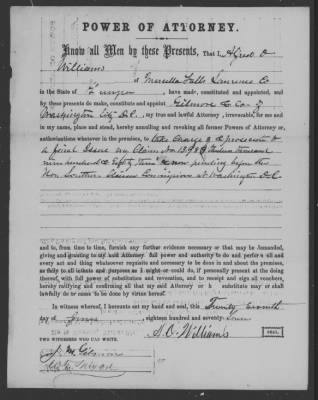 POWER OF ATTORNEY.
Know all Men by these Presents, That I, Alfred O
Williams
of Marietta Falls Lawrence Co
in the State of have made, constituted and appointed, and
by these presents do make, constitute and appoint Gilmore & Co of
Washington City D.C. my true and lawful Attorney, irrevocable, for me and
in my name, place and stead, hereby annulling and revoking all former Powers of Attorney or
authorizations whatever in the premises, to take charge & prosecute to
a final issue my Claim No 13983 Thirteen thousand
nine hundred & Eighty three now pending before the
Hon Southern Claims Commission at Washington D.C
and to, from time to time, furnish any further evidence necessary or that may be demanded,
giving and granting to my said Attorney full power and authority to do and perform all and
every act and thing whatsoever requisite and necessary to be done in and about the premises,
as fully to all intents and purposes as I might or could do, if personally present at the doing
thereof, with full power of substitution and revocation, and to receipt and sign all vouchers,
hereby ratifying and confirming all that my said Attorney or h substitute may or shall
lawfully do or cause to be done by virtue hereof.
In witness whereof, I hereunto set my hand and seal, this Twenty seventh
day of June eighteen hundred and seventy-four
A. O. Williams SEAL.
TWO WITNESSES WHO CAN WRITE.
J. M. Gibson